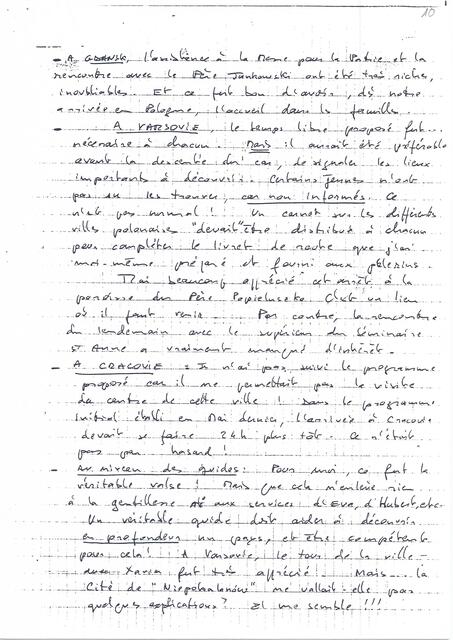 10
- A GDANSK, l'assistance à la Messe pour la Patrie et la
rencontre avec le Père Jankowski ont été très riches,
inoubliables. Et ce fut bon d'avoir, dès notre
arrivée en Pologne, l'accueil dans les familles.
- A VARSOVIE, le temps libre proposé fut
nécessaire à chacun. Mais il aurait été préférable
avant la descente du car, de signaler les lieux
importants à découvrir. Certains jeunes n'ont
pas su les trouver, car non informés. Ce
n'est pas normal ! Un carnet sur les différentes
villes polonaises "devait" être distribué à chacun
pour compléter le livret de route que j'ai
moi-même préparé et fourni aux pèlerins.
J'ai beaucoup apprécié cet arrêt à la
paroisse du Père Popieluszko. C'est un lieu
où il faut venir. Par contre, la rencontre
du lendemain avec le supérieur du Séminaire
St Anne a vraiment manqué d'intérêt.
- A CRACOVIE : Je n'ai pas suivi le programme
proposé car il ne permettait pas la visite
du centre de cette ville ! Dans le programme
initial établi en Mai dernier, l'arrivée à Cracovie
devait se faire 24h plus tôt. Ce n'était
pas par hasard !
- Au niveau des guides : Pour moi, ce fut la
véritable valse ! Mais que cela n'enlève rien
à la gentillesse et aux services d'Eva, d'Hubert, etc.
Un véritable guide doit aider à découvrir
en profondeur un pays, et être compétent
pour cela ! A Varsovie, le tour de la ville
avec fut très apprécié. Mais... la
Cité de "Niepokalanów" ne valait-elle pas
quelques explications ? Il me semble !!!